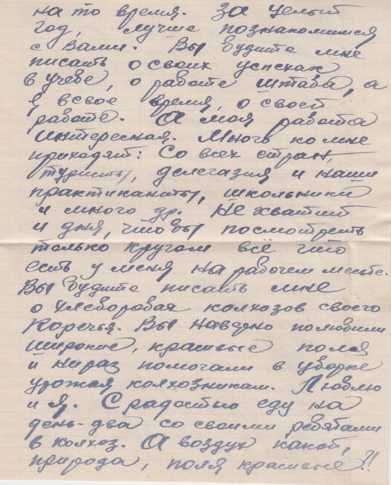 на то время. За целый
год, лучше познакомимся
с Вами. Вы будите мне
писать о своих успехах
в учебе, о работе штаба, а
я всвое время, о своей
работе. А моя работа
интересная. Много ко мне
приходят: Со всех стран,
туристы, делегазия и наши
практиканты, школьники
и много др. Не хватит
и дня, что вы посмотреть
только кругом всё что
есть у меня на рабочем месте.
Вы будите писать мне
о хлеборобах колхозов своего
Каречья. Вы наверно полюбили
широкие, красивые поля
и нираз помогали в уборке
урожая колхозникам. Люблю
и я. С радостью еду на
день-два со своими ребятами
в колхоз. А воздух какой,
природа, поля красивые?!